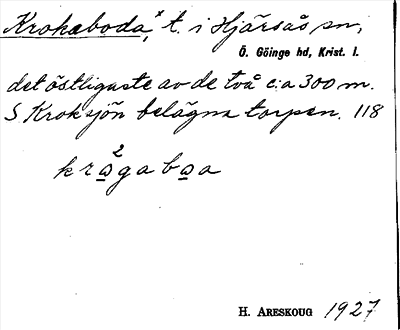 Krokaboda,* t. i Hjärsås sn,
Ö. Göinge hd, Krist. l.
det östligaste av de två c:a 300 m.
S Kroksjön belägna torpen. 118
2
krågaboa
H. ARESKOUG 1927